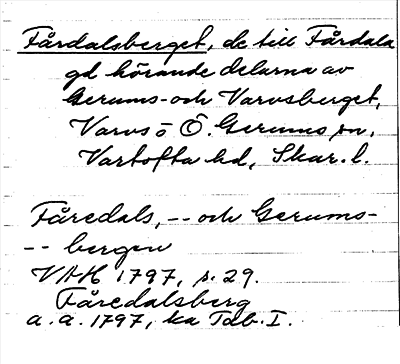 Fårdalsberget, de till Fårdala
gd hörande delarna av
Gerums- och Varvsberget,
Varvs o Ö. Gerums sn,
Vartofta hd, Skar. l.
Fåredals, -- och Gerums-
-- bergen
VAH 1797, s. 29.
Fåredalsberg
a. a. 1797, ka Tab. I.